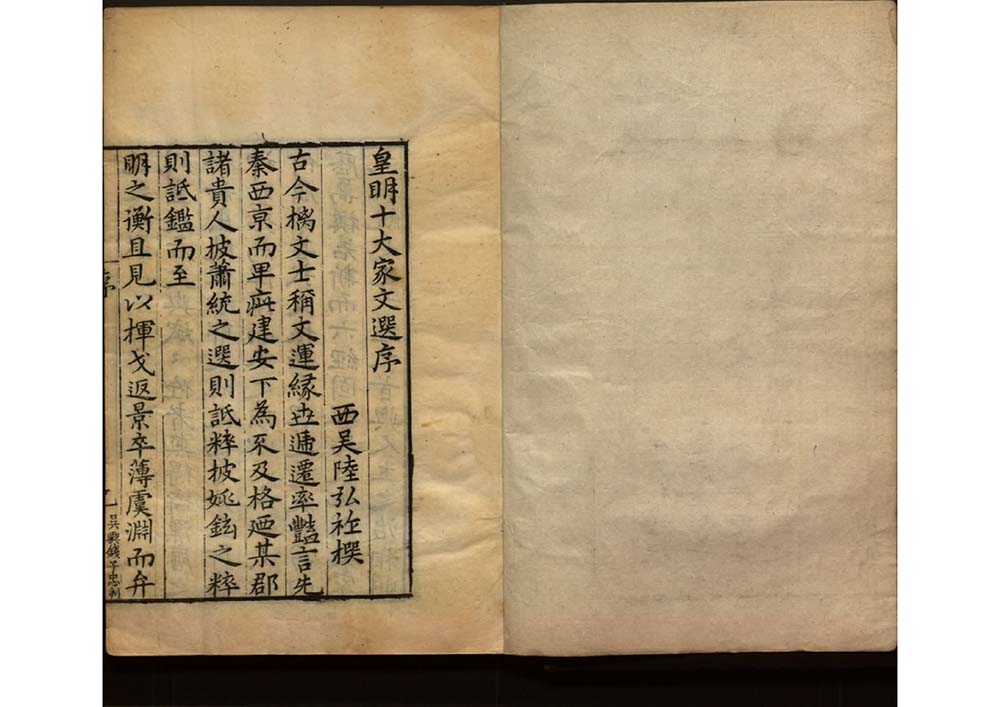 皇明十大家文選序
西吳陸弘祚撰
古今檎文士稱文運緣世逓遷率豔言先
秦西京而卑疵建安下為不及格廼某郡
諸貴人披蕭統之選則詆粹披姚鉉之粹
則詆鑑而至
明之衡且見以揮戈返景卒薄虞淵而弁
序
吳興錢子忠刊